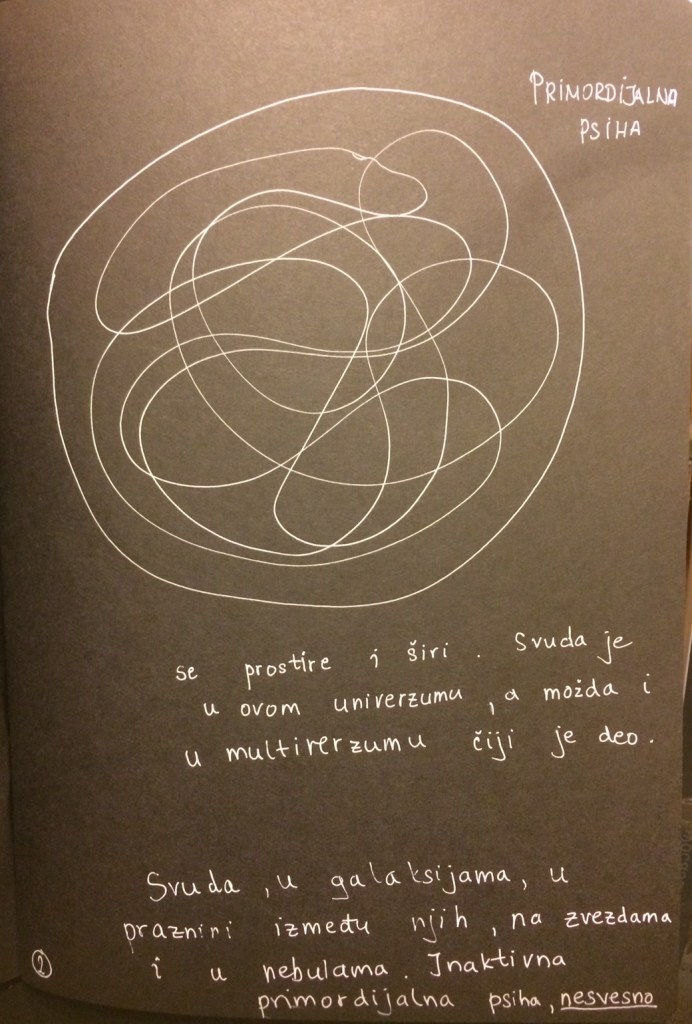 PRIMORDIJALNA
PSIHA
se prostire i širi. Svuda je
u ovom univerzumu, a možda i
u multiverzumu čiji je deo.
Svuda, u galaksijama, u
praznini između njih, na zvezdama
i u nebulama. Inaktivna
primordijalna psiha, nesvesno
2